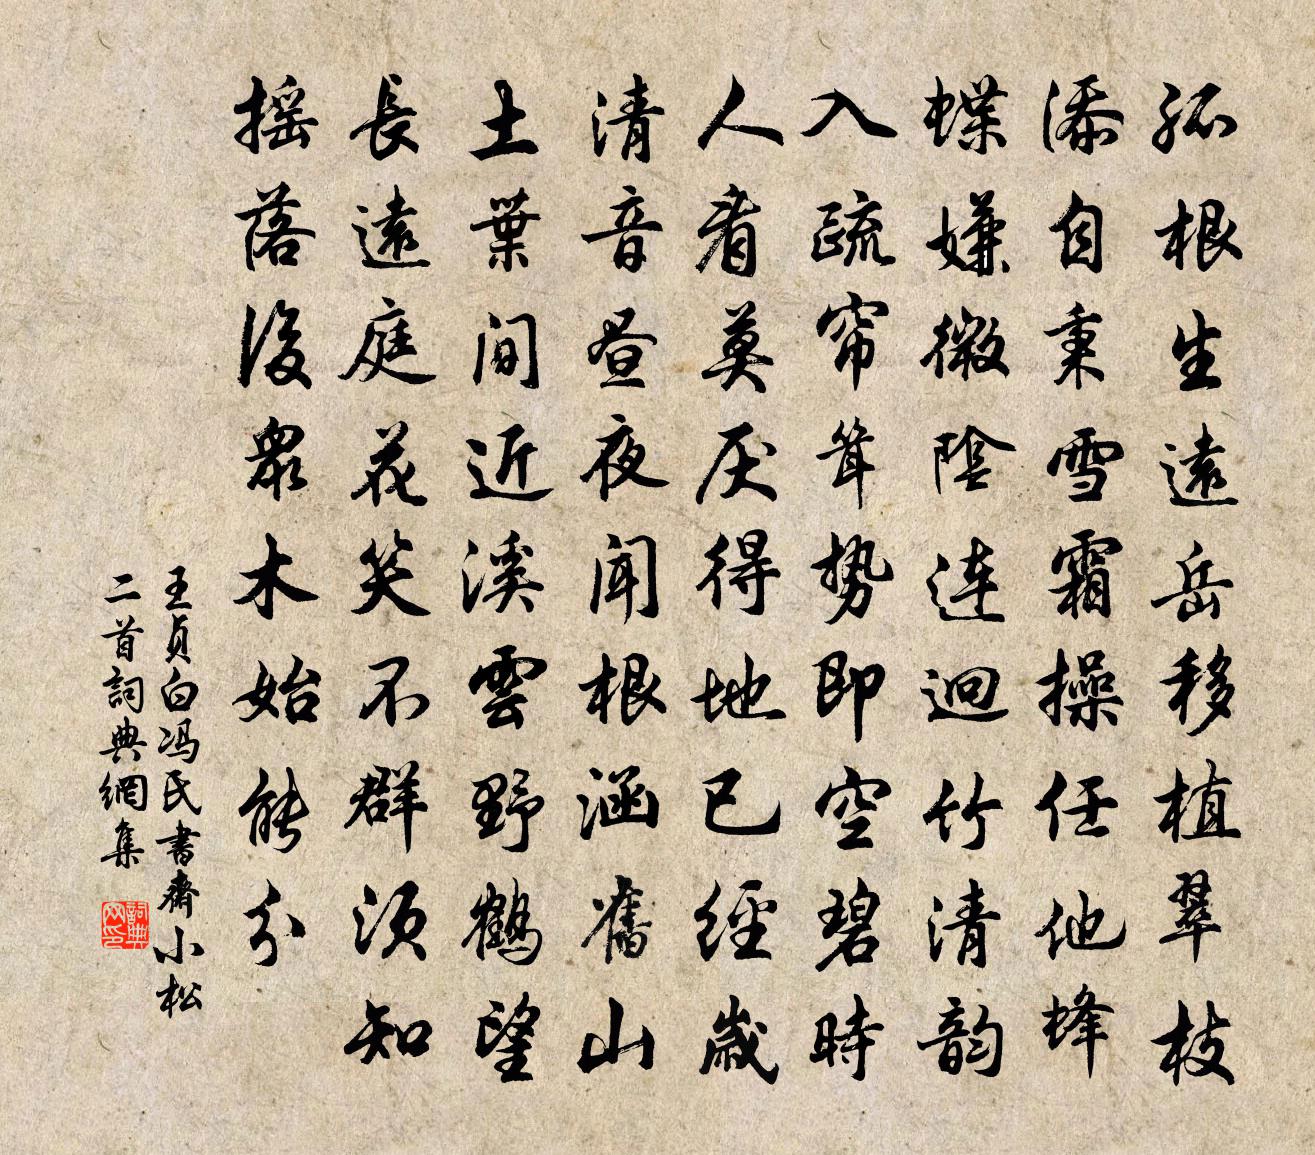 孤根生遠岳移植翠枝
添自秉雪霜操任他蜂
蝶嫌微陰連迥竹清韵
入疏帘聳势即空碧時
人看莫厌得地已經歲
清音昼夜闻根涵舊山
土葉间近溪雲野鶴望
長遠庭花笑不群须知
摇落後眾木始能分
王贞白冯氏書齋小松
二首詞典網集
詞典网印